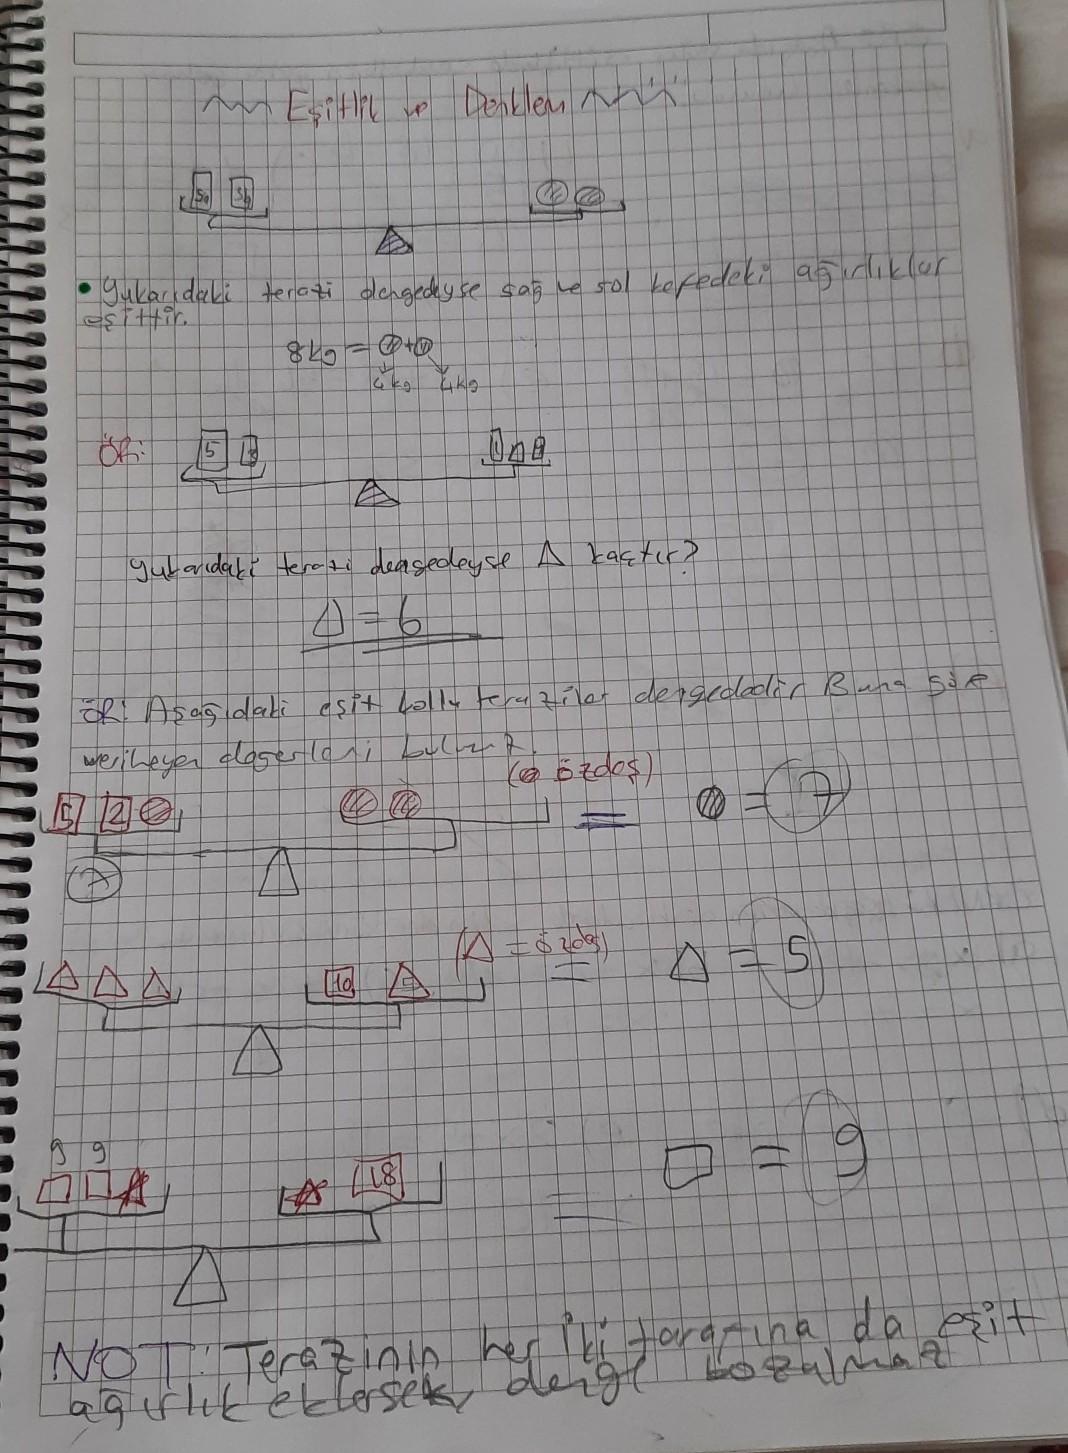 Eşitlik ve Denklem
Yukarıdaki terazi dengedeyse sağ ve sol kefedeki ağırlıklar
eşittir.
8kg = +
4kg 4kg
ÖR:
5
1
Yukarıdaki terazi dengedeyse Δ kaçtır?
Δ = 6
ÖR: Aşağıdaki eşit kollu teraziler dengededir Buna göre
verilmeyen
özdeş)
5 2 = 7
7
(Δ = özdeş)
10 Δ = 5
9 9
18 □ = 9
NOT: Terazinin her iki tarafına da eşit
ağırlık eklersek, denge bozulmaz